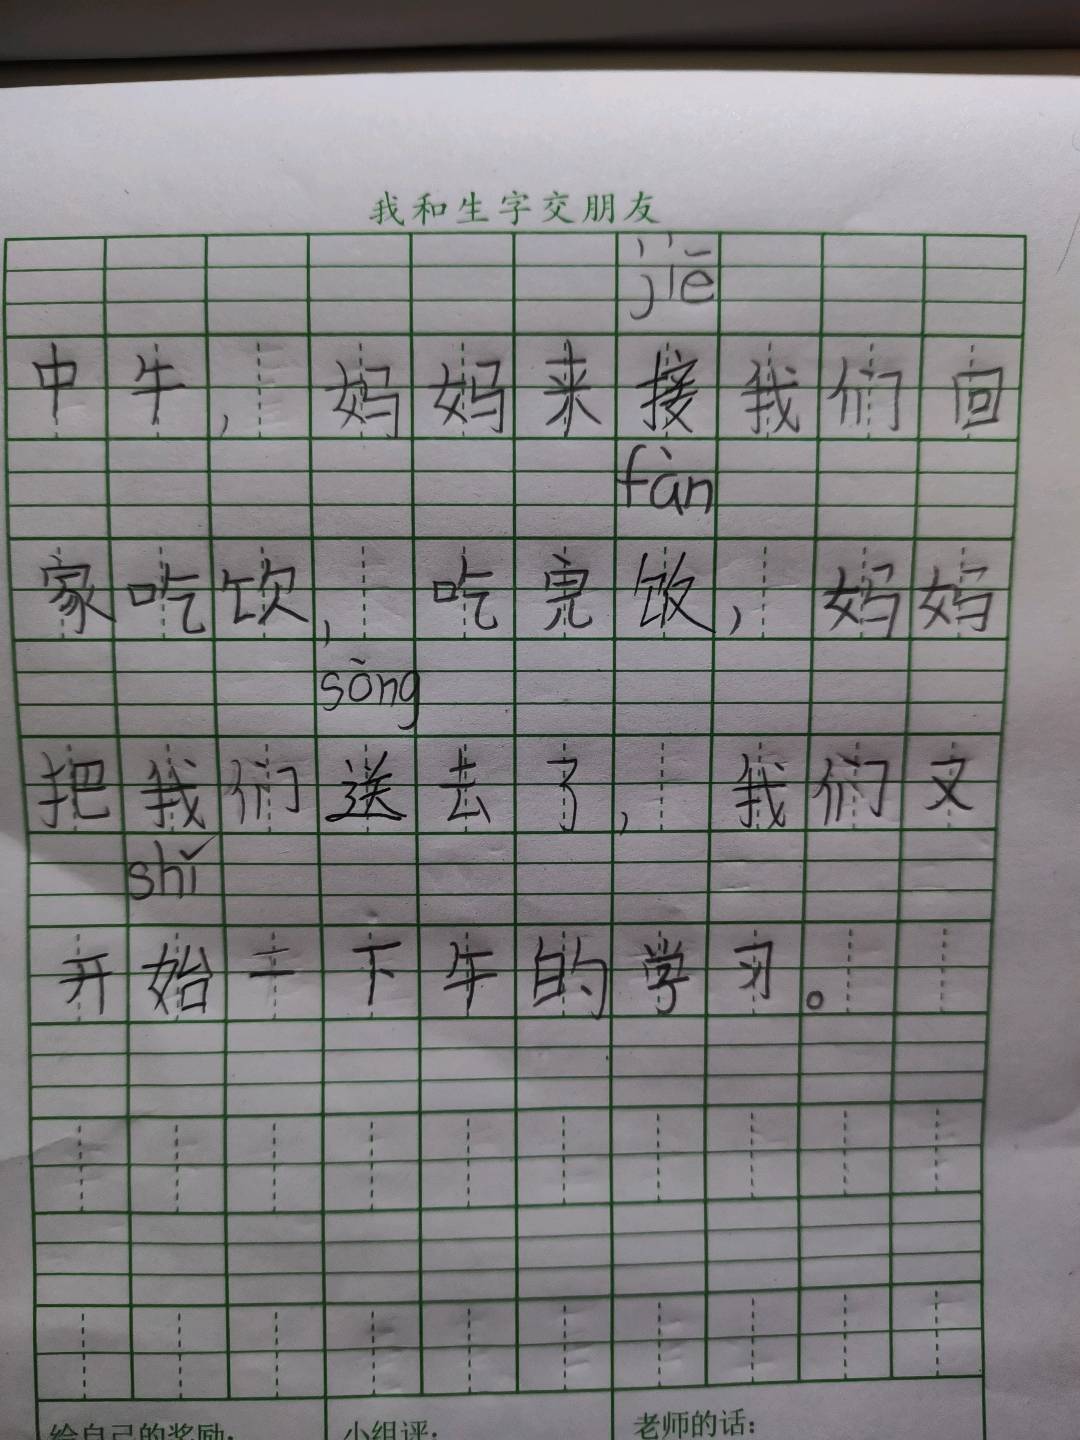 我和生字交朋友
jiē
中午,妈妈来接我们回
fàn
家吃饮,吃完饭,妈妈
sòng
把我们送去了,我们又
shǐ
开始一下午的学习。
给自己的奖励: 小组评: 老师的话: